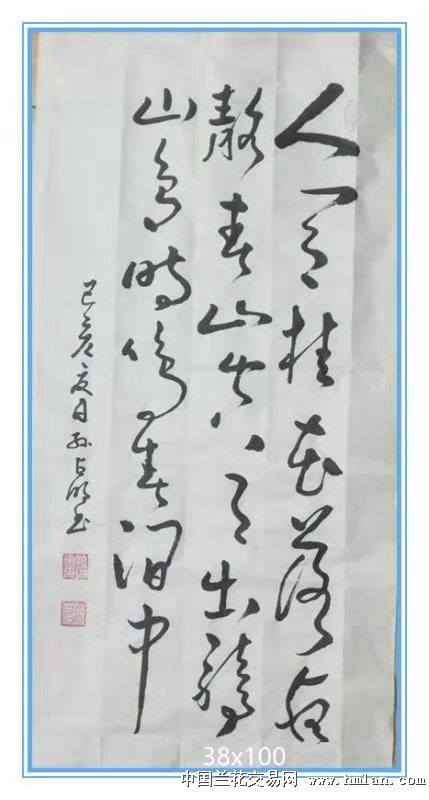 人闲桂花落夜
静春山空月出惊
山鸟时鸣春涧中
己亥夏日孙占明书
38x100
中国兰花交易网 www.hmlan.com